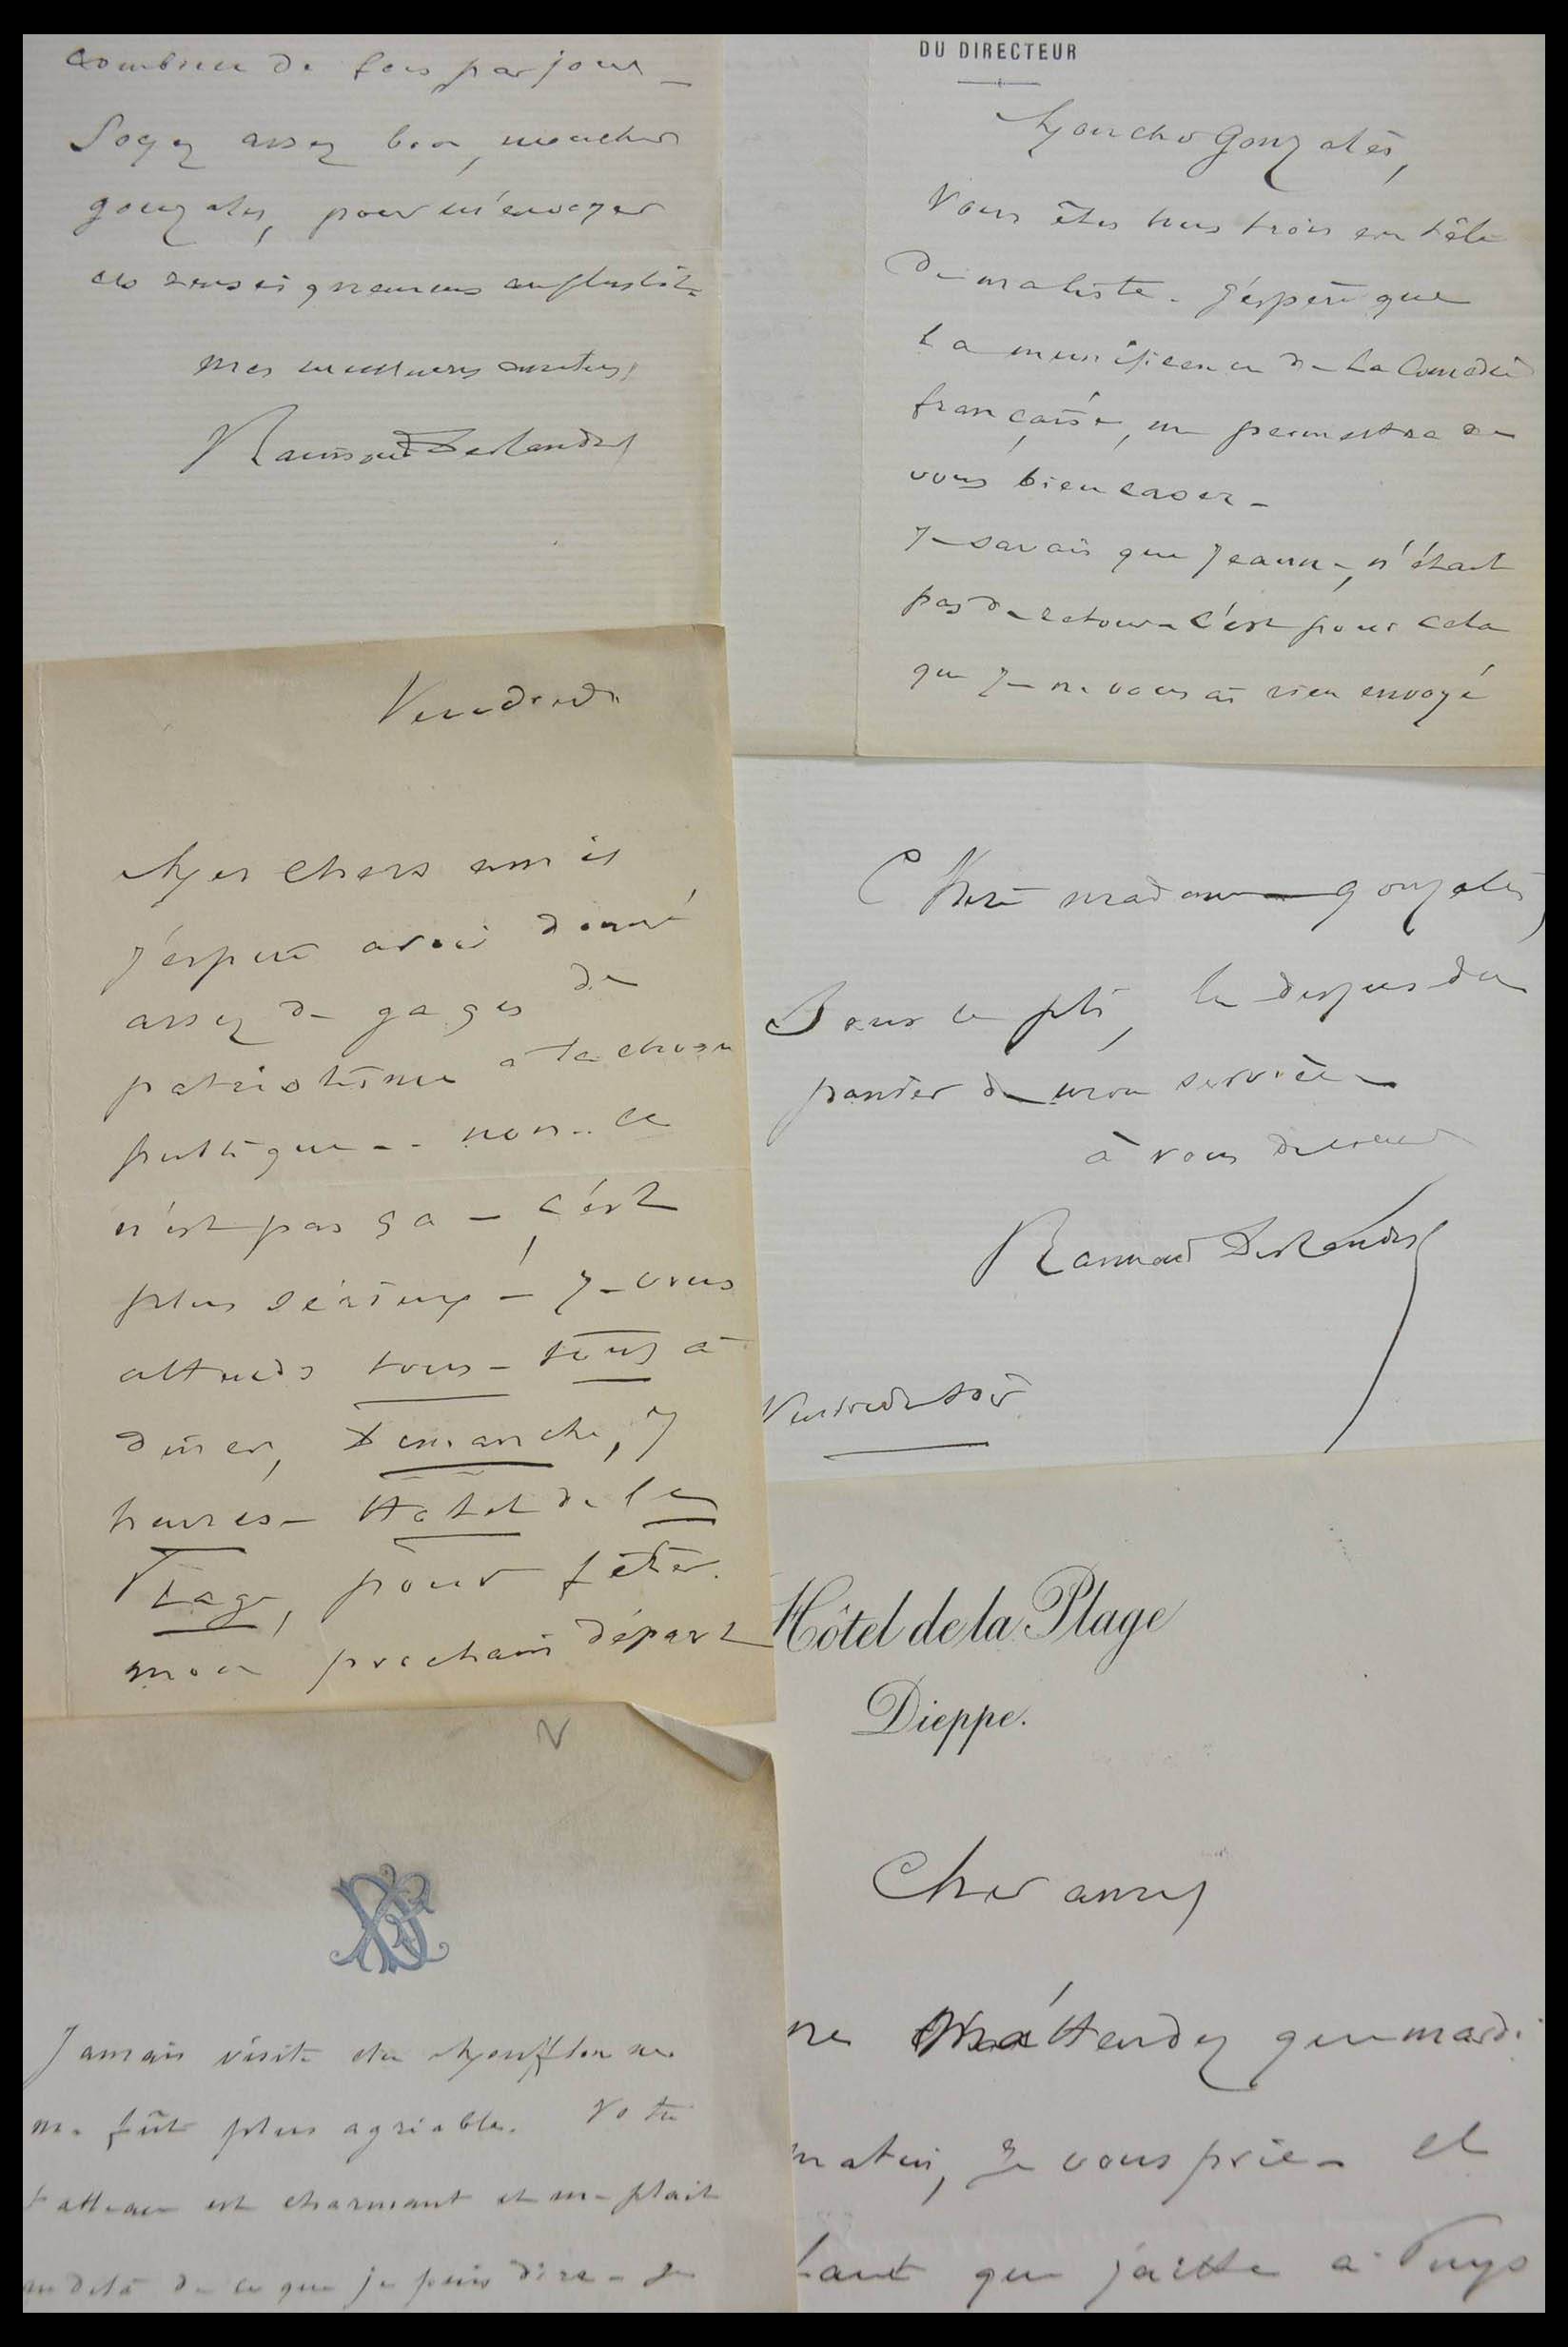 combien de fois par jour_
Soyez assez bon, mon cher
gonzalès, pour m'envoyer
ces renseignemens au plustôt.
mes meilleures amitiés,
Raimond Deslandes
DU DIRECTEUR
Mon cher Gonzalès,
Vous êtes tous trois en tête
de ma liste. J'espère que
la munificence de la Comédie
française, me permettra de
vous bien caser_
Je savais que Jeanne, n'était
pas de retour_ c'est pour cela
que je ne vous ai rien envoyé
Vendredi
Mes chers amis
J'espère avoir donné
assez de gages de
patriotisme à la chose
publique_ . non.. ce
n'est pas ça _ c'est
plus sérieux _ Je vous
attends tous _ tous à
diner, Dimanche, 7
heures_ Hotel de la
Plage, pour fêter
mon prochain départ
Chère madame gonzalès,
Sous ce pli, le dessus du
panier de mon service_
à vous de coeur
Raimond Deslandes
Vendredi soir
Hôtel de la Plage
Dieppe.
Cher ami,
ne m'attendez que mardi
matin, Je vous prie_ et
faut que j'aille à Puys
Jamais visite du Moufflon ne
me fût plus agréable. Votre
tableau est charmant et me plait
au delà de ce que je puis dire_ Je